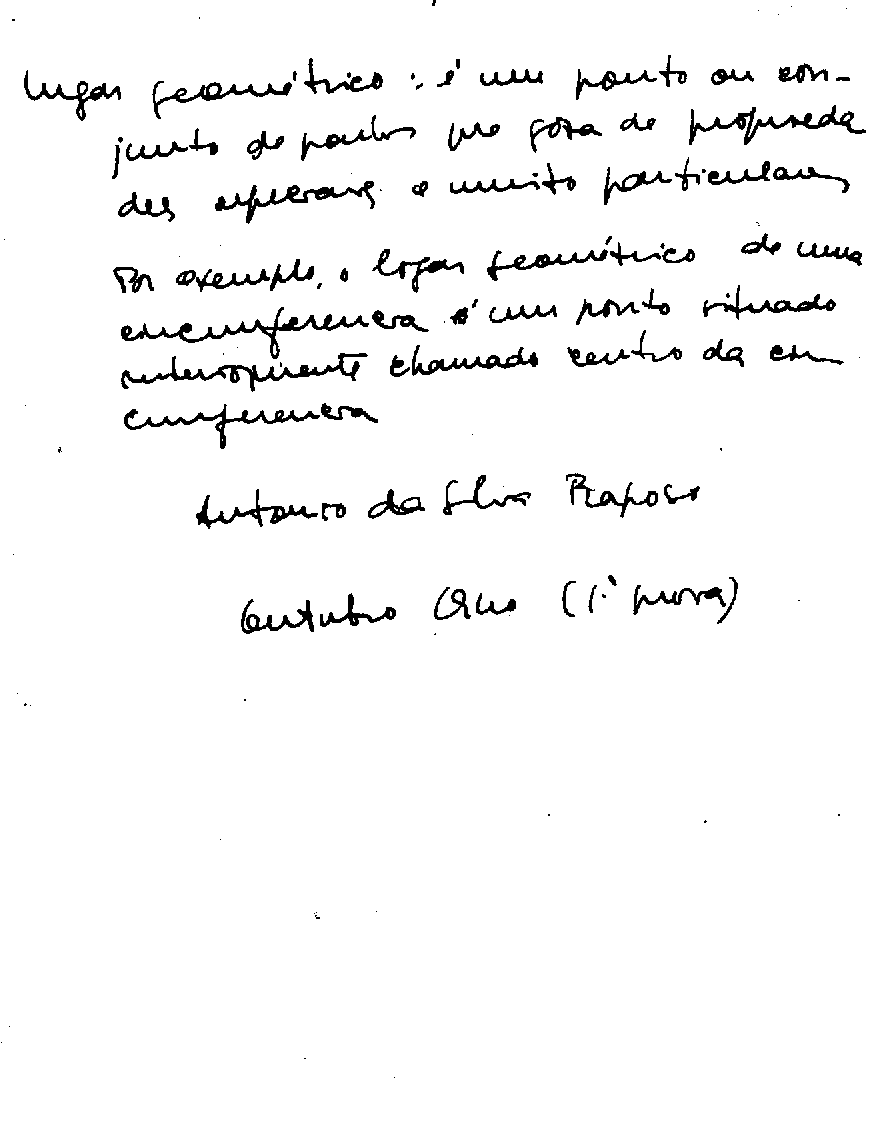 lugar geométrico : é um ponto ou con-
junto de pontos que goza de proprieda
des especiais e muito particulares
Por exemplo, o lugar geométrico de uma
circunferencia é um ponto situado
interiormente chamado centro da cir
cunferencia
Antonio da Silva Raposo
Outubro (1ª prova)